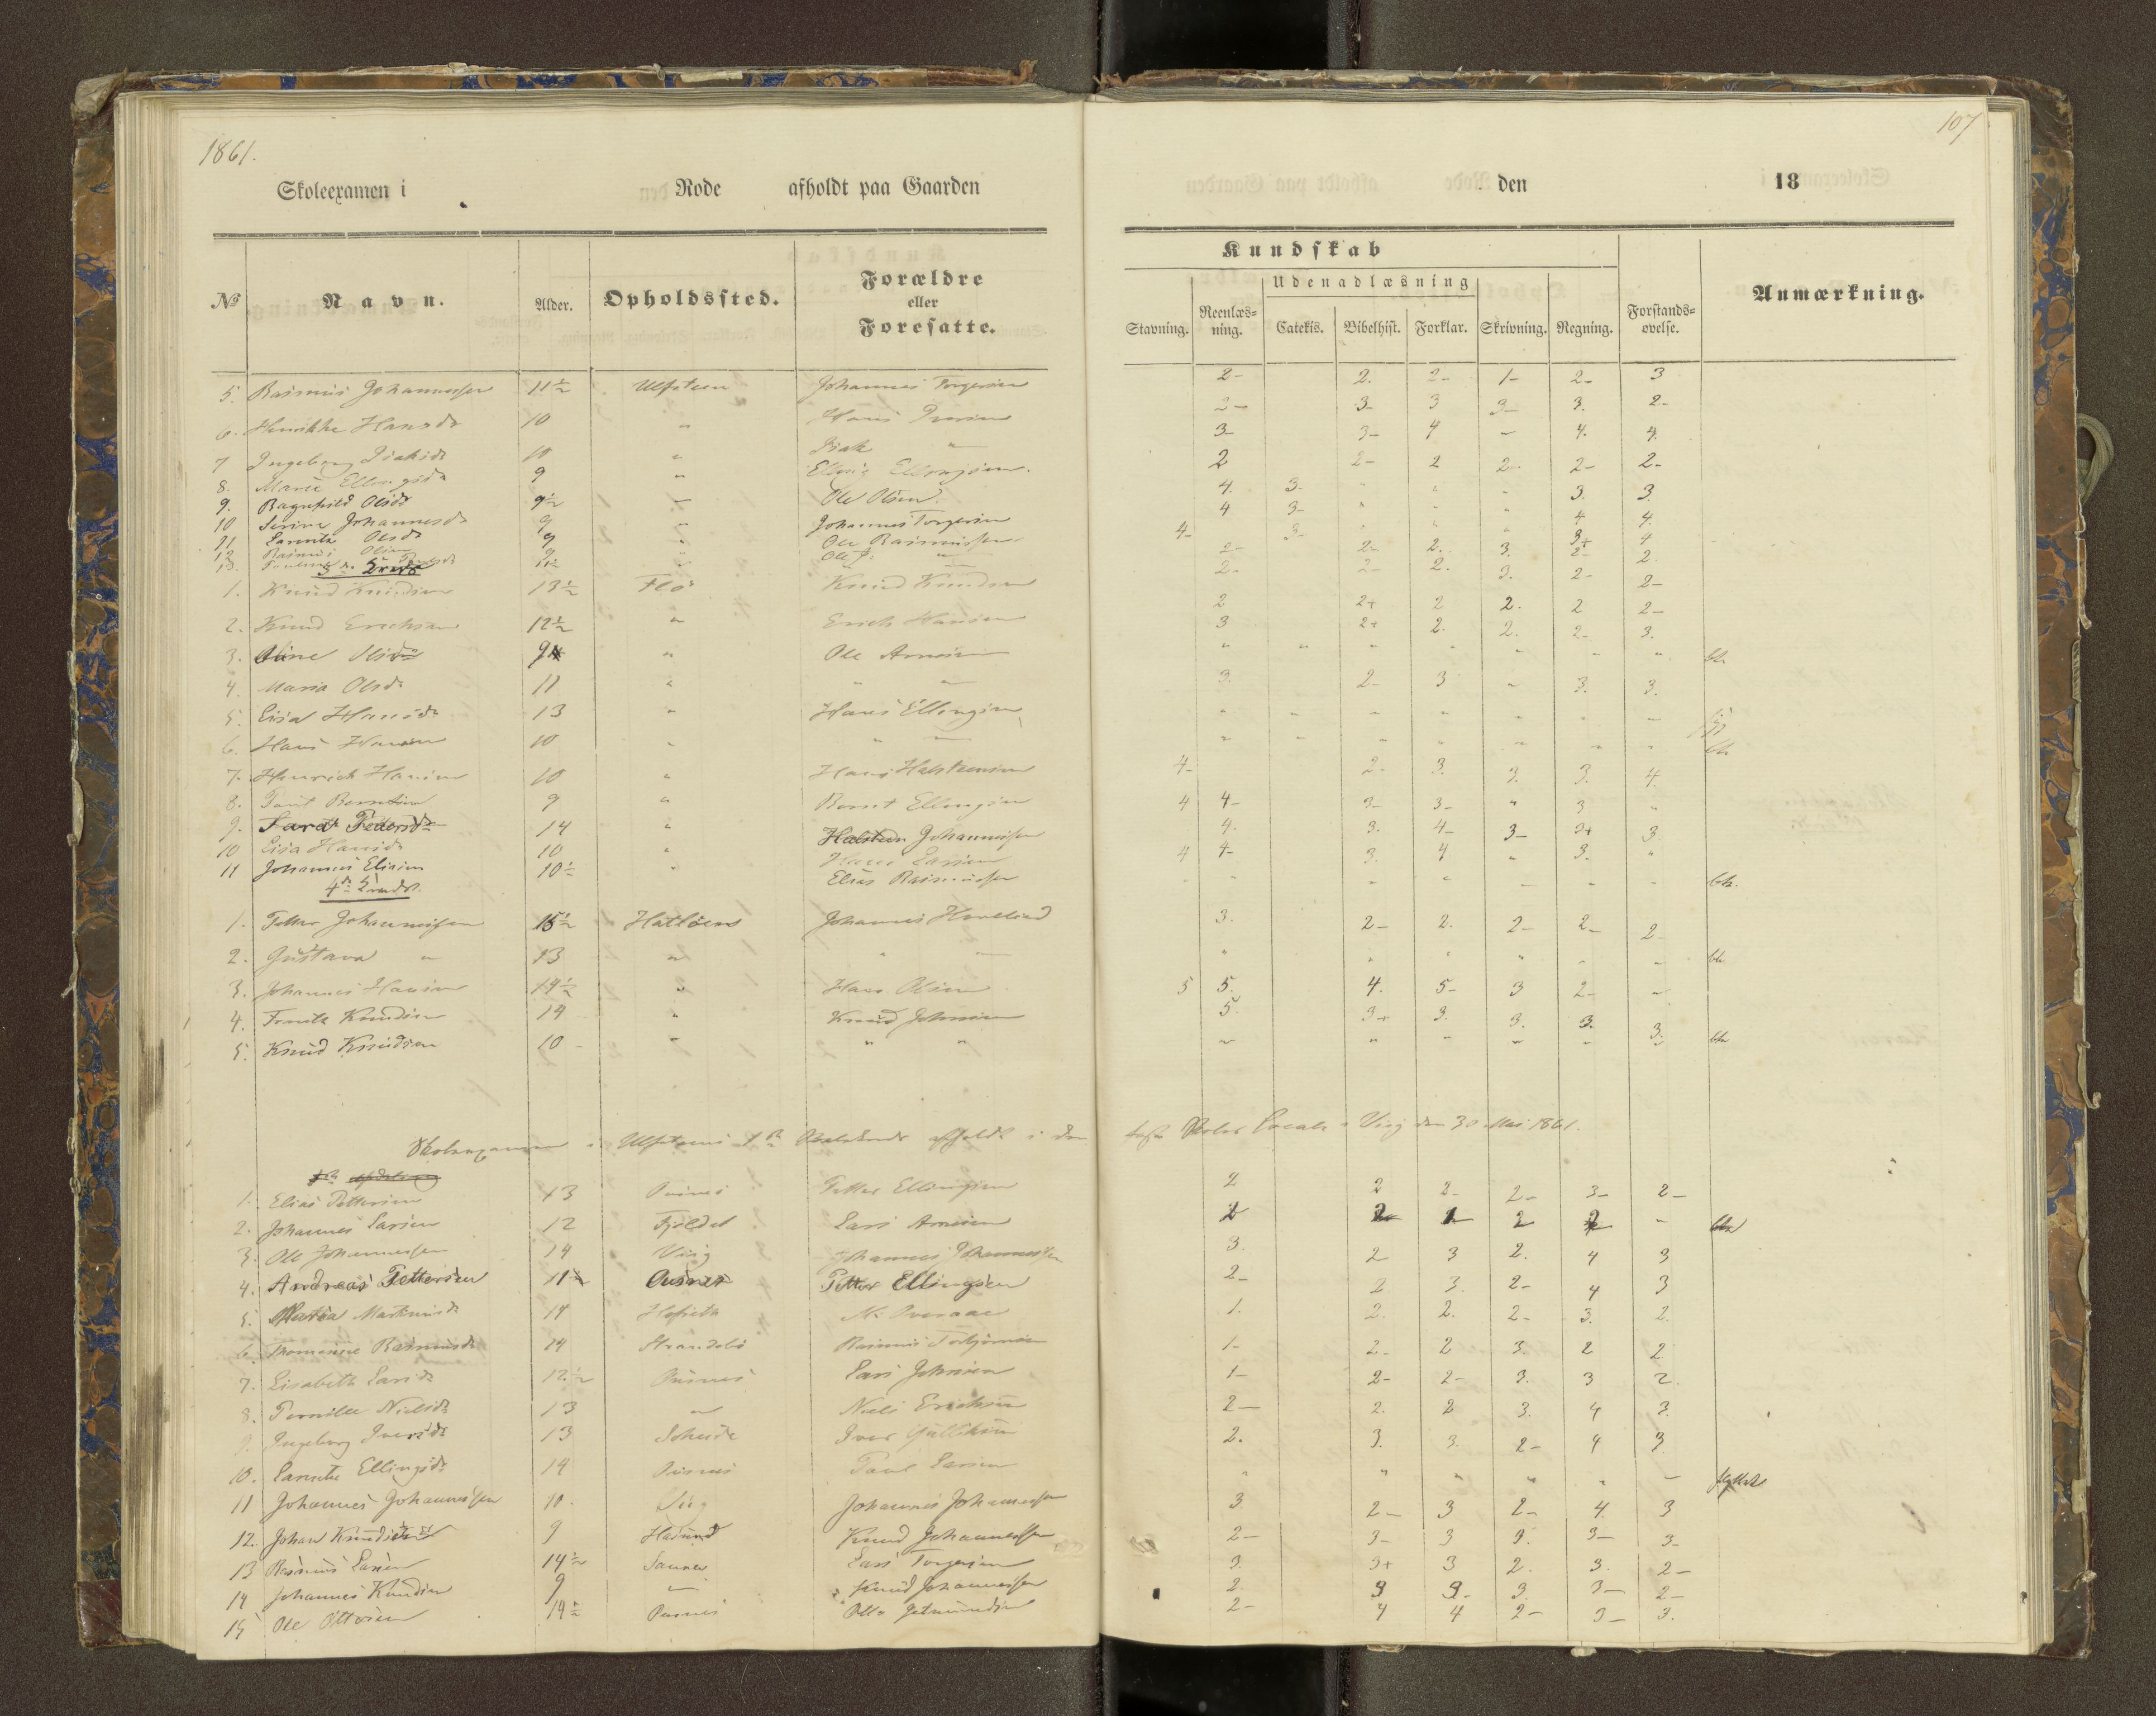 1861.
107
Skoleexamen i Rode afholdt paa Gaarden den 18
Kundskab
Udenadlæsning
No Navn. Alder. Opholdssted. Forældre eller Foresatte. Stavning. Reenlæsning. Catekis. Bibelhist. Forklar. Skrivning. Regning. Forstandsøvelse. Anmærkning.
5. Rasmus Johannessen 11½ Ulfsteen Johannes Torgersen 2- 2. 2- 1- 2- 3
6. Henrikke Hansdr 10 " Hans 2- 3- 3 3- 3. 2-
7 Ingeborg Isaksdr 10 " Isak " 3- 3- 4 - 4. 4.
8. Marie Ellingsdr 9 " Elling Ellingsen. 2 2- 2 2- 2- 2-
9. Ragnhild Olsdr 9½ " Ole Olsen 4. 3. " " - 3. 3.
10 Serine Johannesdr 9 " Johannes Torgersen 4 3- " " " 4 4.
11 Olsdr 9 " Ole Rasmussen 4- 3- " " " 3+ 4
12 Rasmus Olsen 9 " Ole 2- 2- 2. 3. 2- 2.
13. 11½ " 2- 2- 2. 3. 2- 2-
3die Kreds
1. Knud Knudsen 13½ Flø Knud Knudsen 2 2+ 2 2. 2 2-
2. Knud Erichsen 12½ " Erich Hansen 3 2+ 2. 2. 2- 3.
3. Oline Olsdr 9 " Ole Arnesen " " " " " " "
4. Maria Olsdr 11 " " " 3. 2- 3 - 3. 3.
5. Lisa Hansdr 13 " Hans Ellingsen " " " " " " "
6. Hans Hansen 10 " " " " " " " " " "
7. Henrich Hansen 10 " Hans Halsteensen 4- 2- 3. 3. 3. 4.
8. Berntsen 9 " Bernt Ellingsen 4 4- 3- 3- " 3 "
9. Sara Pettersdr 14 " Halsteen Johannessen 4. 3. 4- 3- 3+ 3
10 Lisa Hansdr 10 " Hans Larsen 4 4- 3. 4 " 3. "
11 Johannes Eliasen 10½ " Elias Rasmussen " " " " " " "
4de Kreds.
1. Petter Johannessen 15½ Hatløens Johannes 3. 2- 2. 2- 2- 2-
2. Gustava " 13 " " " " " " " " "
3. Johannes Hansen 14½ " Hans Olsen 5 5. 4. 5- 3 2- -
4. Knudsen 14 " Knud Johnsen 5. 3+ 3. 3. 3. 3.
5. Knud Knudsen 10 " " " " " " " " "
Skoleexamen i Ulfsteens 1ste afholdt i den faste Skoles Locale i Viig den 30 Mai 1861.
1. Elias Pettersen 13 Petter Ellingsen 2 2 2- 2- 3- 2-
2. Johannes Larsen 12 Fjeldet Lars Arnesen 2 -
3. Ole Johannessen 14 Viig Johannes Johannessen 3. 2 3 2. 4 3
4. Andreas Pettersen 11½ Petter Ellingsen 2- 2 3. 2- 4 3
5. Maria Martinusdr 14 1. 2. 2. 2- 3. 2.
6. Thomasine Rasmusdr 14 Strandabø Rasmus Torbjørnsen 1- 2- 2 3. 2 2
7. Lisabeth Larsdr 12½ Lars Johnsen 1- 2- 2- 3. 3 2.
8. Pernille Nielsdr 13 " Niels Erichsen 2- 2. 2 3. 4 3.
9. Ingeborg Iversdr 13 Iver 2. 3. 3. 2- 4 3
10. Ellingsdr 14 Larsen " " " " " - flyttet
11 Johannes Johannessen 10. Viig Johannes Johannessen 3 2- 3 2- 4. 3
12. Johan Knudsen 9 Knud Johannessen 2- 3- 3 3. 3- 3-
13 Rasmus Larsen 14½ Lars Torgersen 3. 3+ 3 2. 3. 2-
14 Johannes Knudsen 9 " Knud Johannessen 2. 3 3- 3. 3- 2-
15 Ole Ottosen 14½ Otto 2- 4 4 2- 3- 3.